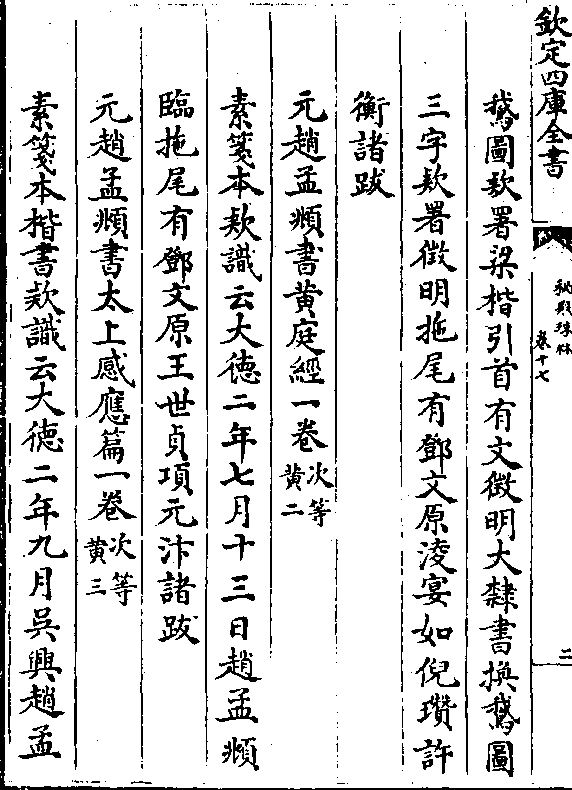 欽定四庫全書
秘殿珠林
卷十七
二
鵝圖欵署梁楷引首有文徴明大隸書換鵝圖
三字欵署徴明拖尾有鄧文原淩宴如倪瓚許
衡諸跋
元趙孟頫書黄庭經一卷次等黄二
素箋本欵識云大徳二年七月十三日趙孟頫
臨拖尾有鄧文原王世貞項元汴諸跋
元趙孟頫書太上感應篇一卷次等黄三
素箋本楷書欵識云大徳二年九月吳興趙孟